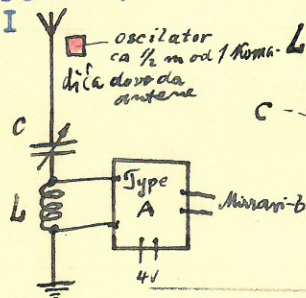 I
oscilator
ca 1/2 m od 1 koma-
dića dovoda
antene
L
C
C -
L
Type
A
4V